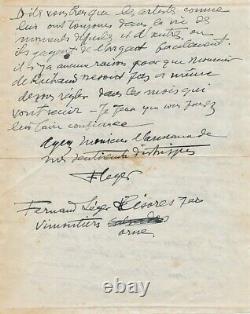 D'ailleurs que les artistes comme
lui ont toujours dans la vie des
moments difficiles et d'autres où
ils gagnent de l'argent facilement.
il n'y a aucune raison pour que Monsieur
de Richaud ne soit pas à même
de vous régler dans les mois qui
vont venir - Je veux que vous soyez
certain
Ayez Monsieur l'assurance de
mes sentiments distingués
FLeger
Fernand Léger Lisores par
Vimoutiers
orne
stamp-auctions.com